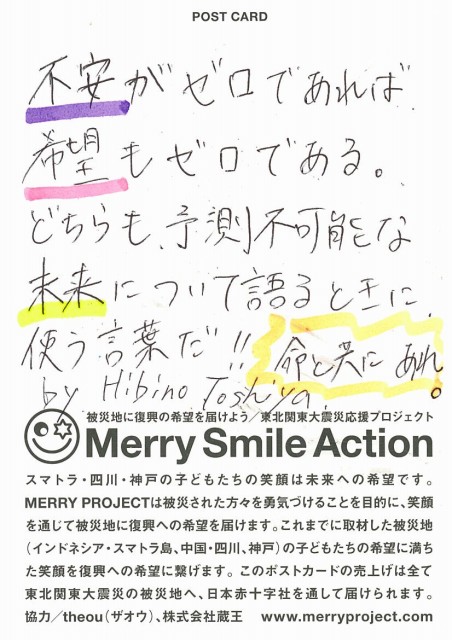 POST CARD
不安がゼロであれば
希望もゼロである。
どちらも、予測不可能な
未来について語るときに、
使う言葉だ!!
命と共に あれ。
by Hibino Toshiya.
被災地に復興の希望を届けよう/東北関東大震災応援プロジェクト
Merry Smile Action
スマトラ・四川・神戸の子どもたちの笑顔は未来への希望です。
MERRY PROJECTは被災された方々を勇気づけることを目的に、笑顔
を通じて被災地に復興への希望を届けます。これまでに取材した被災地
(インドネシア・スマトラ島、中国・四川、神戸)の子どもたちの希望に満ち
た笑顔を復興への希望に繋げます。このポストカードの売上げは全て
東北関東大震災の被災地へ、日本赤十字社を通して届けられます。
協力/theou(ザオウ)、株式会社蔵王 www.merryproject.com